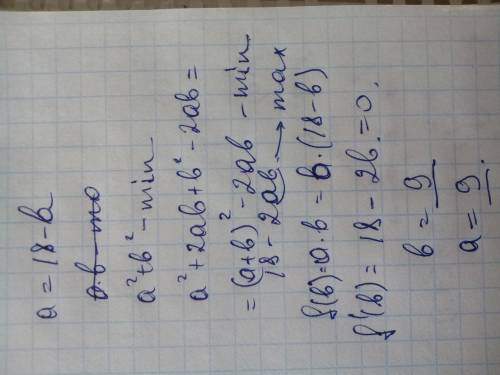 a = 18 - в
a·b - mo
a² + b² - min
a² + 2ab + b² - 2ab =
= (a+b)² - 2ab - min
18 - 2ab → max
f(b) = a·b = b·(18-b)
f'(b) = 18 - 2b = 0.
b = 9
a = 9.